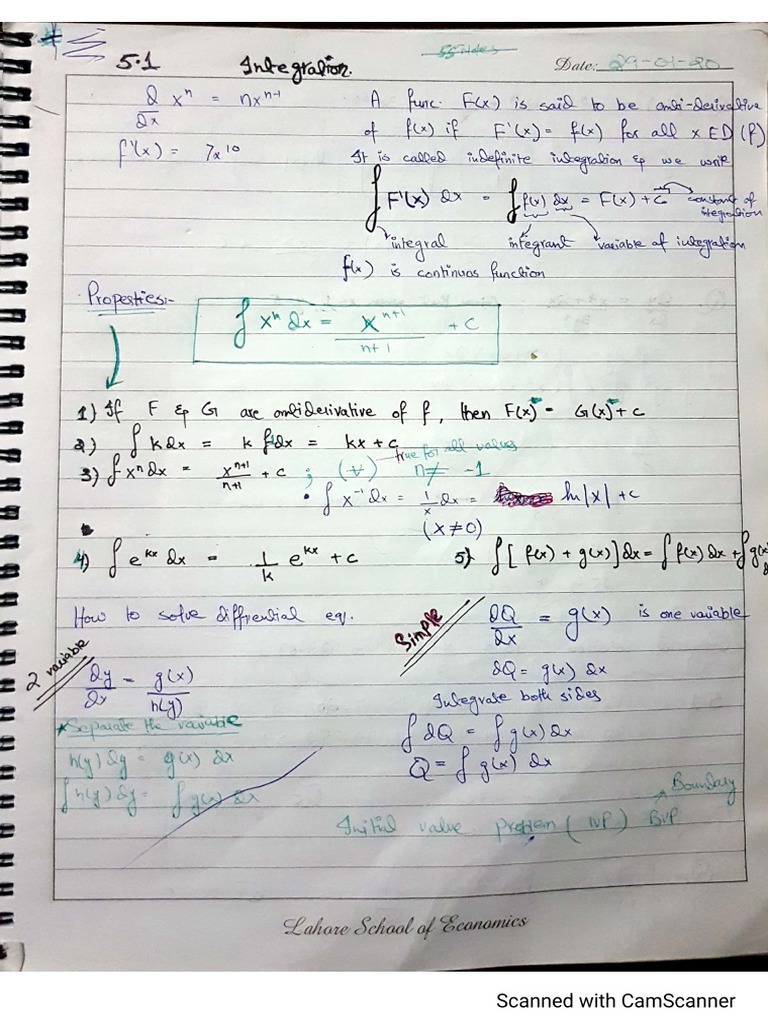 5.1 Integration.
Date: 29-01-20
d/dx xⁿ = nxⁿ⁻¹
f'(x) = 7x¹⁰
A func. F(x) is said to be anti-derivative
of f(x) if F'(x) = f(x) for all x ED (f)
It is called indefinite integration & we write
∫ F'(x) dx = ∫ f(x) dx = F(x) + c → constant of integration
integral integrant variable of integration
f(x) is continuos function
Properties:-
∫ xⁿ dx = xⁿ⁺¹/n+1 + C
1) If F & G are antiderivative of f, then F(x) = G(x) + c
2) ∫ k dx = k ∫ dx = kx + c
3) ∫ xⁿ dx = xⁿ⁺¹/n+1 + c ; (∀) n ≠ -1
true for all values
• ∫ x⁻¹ dx = 1/x dx = ln |x| + c
(x ≠ 0)
4) ∫ eᵏˣ dx = 1/k eᵏˣ + c
5) ∫ [f(x) + g(x)] dx = ∫ f(x) dx + ∫ g(x)
How to solve diffrential eq.
2 variable
dy/dx = g(x)/h(y)
*Separate the variable
h(y) dy = g(x) dx
∫ h(y) dy = ∫ g(x) dx
Simple
dQ/dx = g(x) is one variable
dQ = g(x) dx
Integrate both sides
∫ dQ = ∫ g(x) dx
Q = ∫ g(x) dx
Boundary
Initial value problem (IVP) BVP
Lahore School of Economics
Scanned with CamScanner